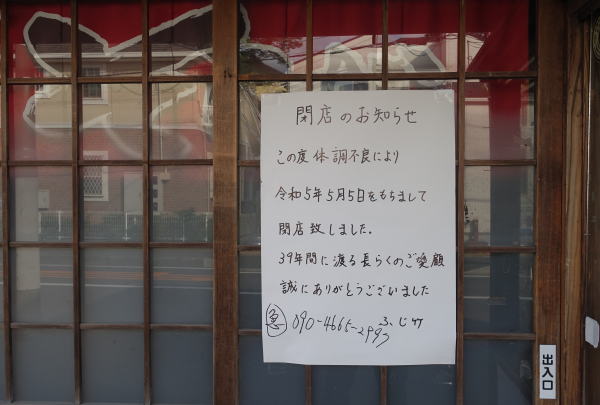 閉店のお知らせ
この度体調不良により
令和5年5月5日をもちまして
閉店致しました。
39年間に渡る長らくのご愛顧
誠にありがとうございました
急 090-4665-2993 ふじ竹
出入口